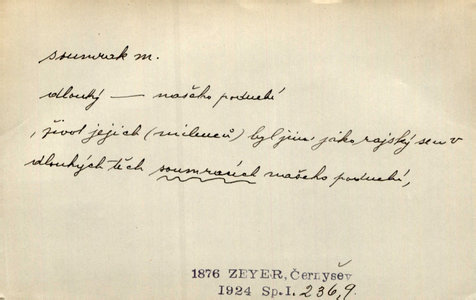 soumrak m.
dlouhý — našeho podnebí
, život jejich (milenců) byl jim jako rajský sen v
dlouhých těch soumracích našeho podnebí,
1876 ZEYER, Černyšev
1924 Sp. I. 236,9.